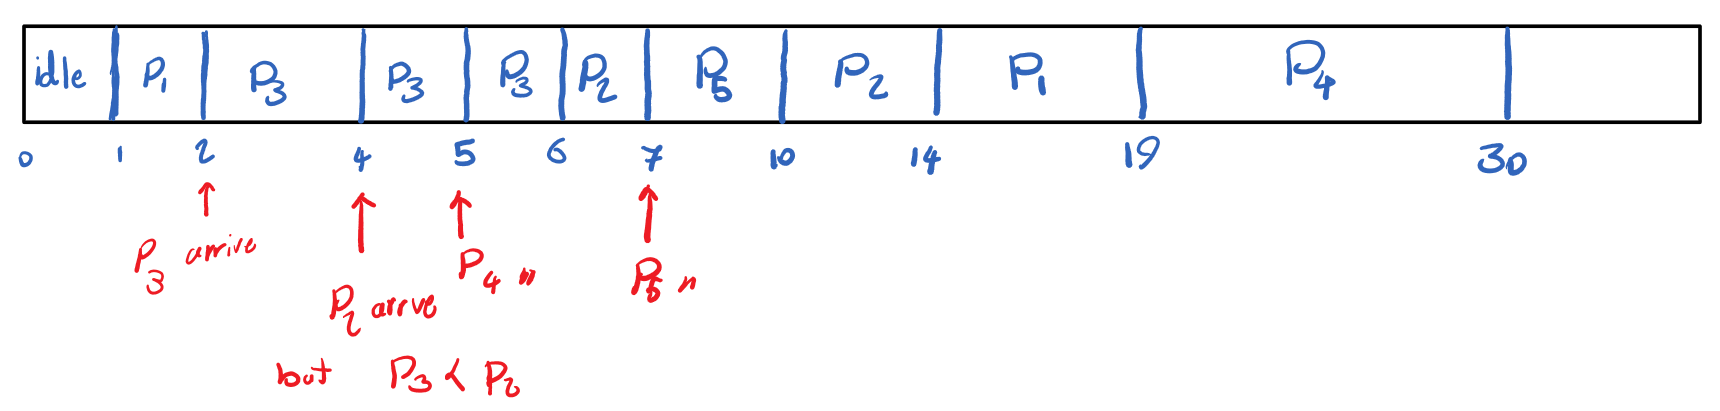 idle P1 P3 P3 P3 P2 P5 P2 P1 P4
0 1 2 4 5 6 7 10 14 19 30
P3 arrive
P4 "
P5 "
P2 arrve
but P3 < P2